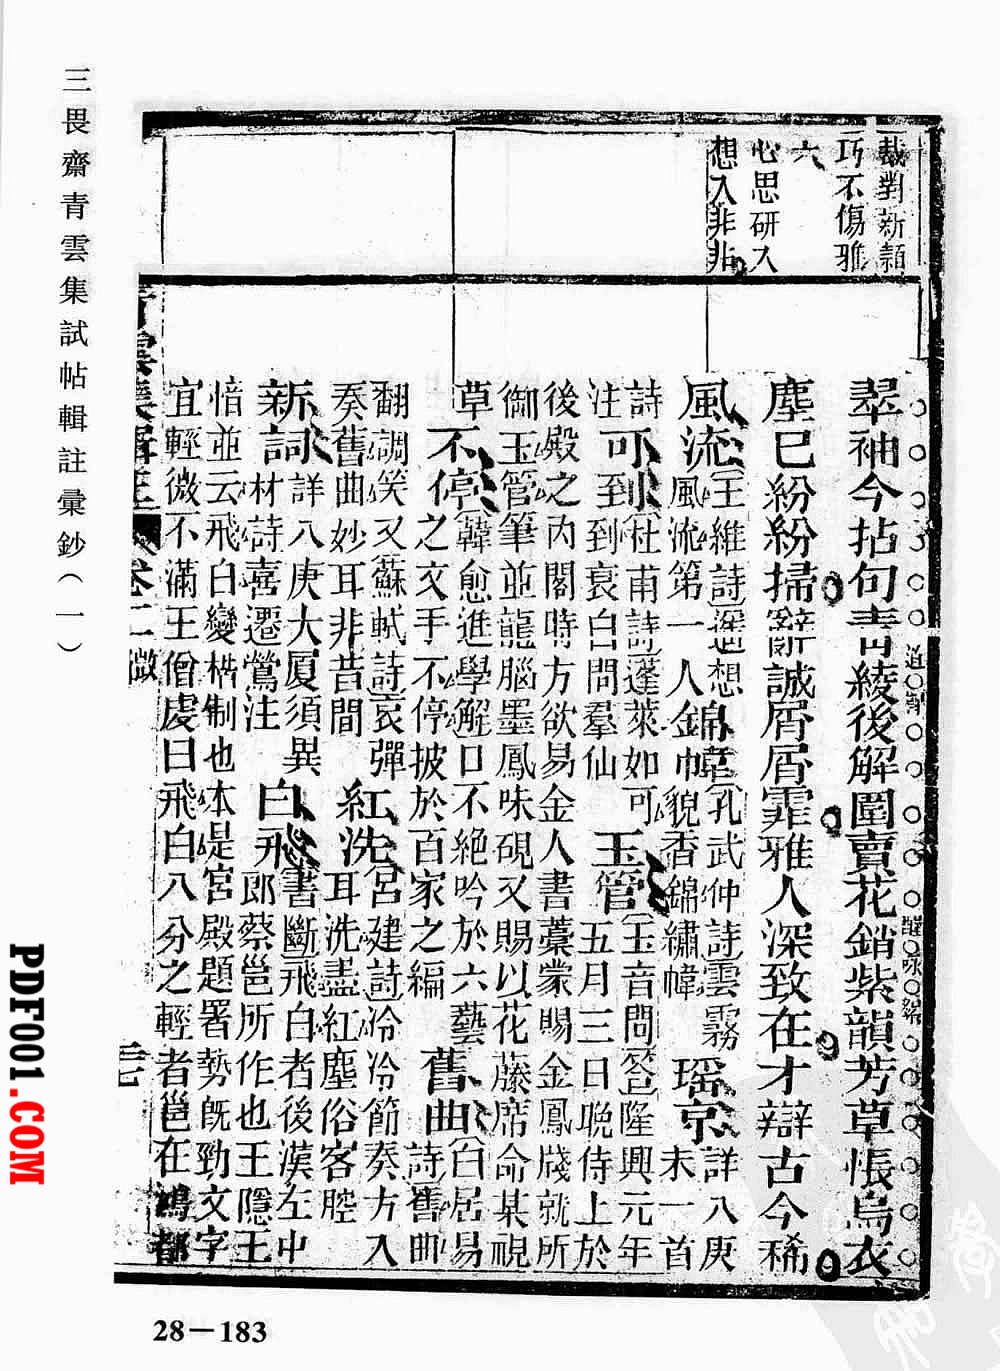 三畏齋青雲集試帖輯註彙鈔（一）
裁對新頴
巧不傷雅
六
心思研入
想入非非
翠袖今拈句青綾後解圍賣花銷紫韻芳草悵烏衣
道削
醒味鎔
塵已紛紛掃辭誠屑屑霏雅人深致在才辯古今稀
風流王維詩遙想錦幃孔武仲詩雲霧瑶京詳八庚
風流第一人金帷貌香錦繡幃未一首
詩可到杜甫詩蓬萊如可玉管玉音問答隆興元年
注到到衰白問羣仙五月三日晚侍上於
後殿之內閣時方欲易金人書藁蒙賜金鳳牋就所
御玉管筆並龍腦墨鳳味硯又賜以花藤席命某視
草不停韓愈進學解口不絕吟於六藝舊曲白居易
之文手不停披於百家之編詩舊曲
翻調笑又蘇軾詩哀彈紅洗宮建詩泠泠節奏方入
奏舊曲妙耳非昔間耳洗盡紅塵俗客腔
新詞詳八庚大厦須異白飛書斷飛白者後漢左中
材詩喜遷鶯注郎蔡邕所作也王隱王
愔並云飛白變楷制也本是宮殿題署勢旣勁文字
宜輕微不滿王僧虔曰飛白八分之輕者邕在鴻都
青雲集輯註 卷二 微
28－183
PDF001.COM